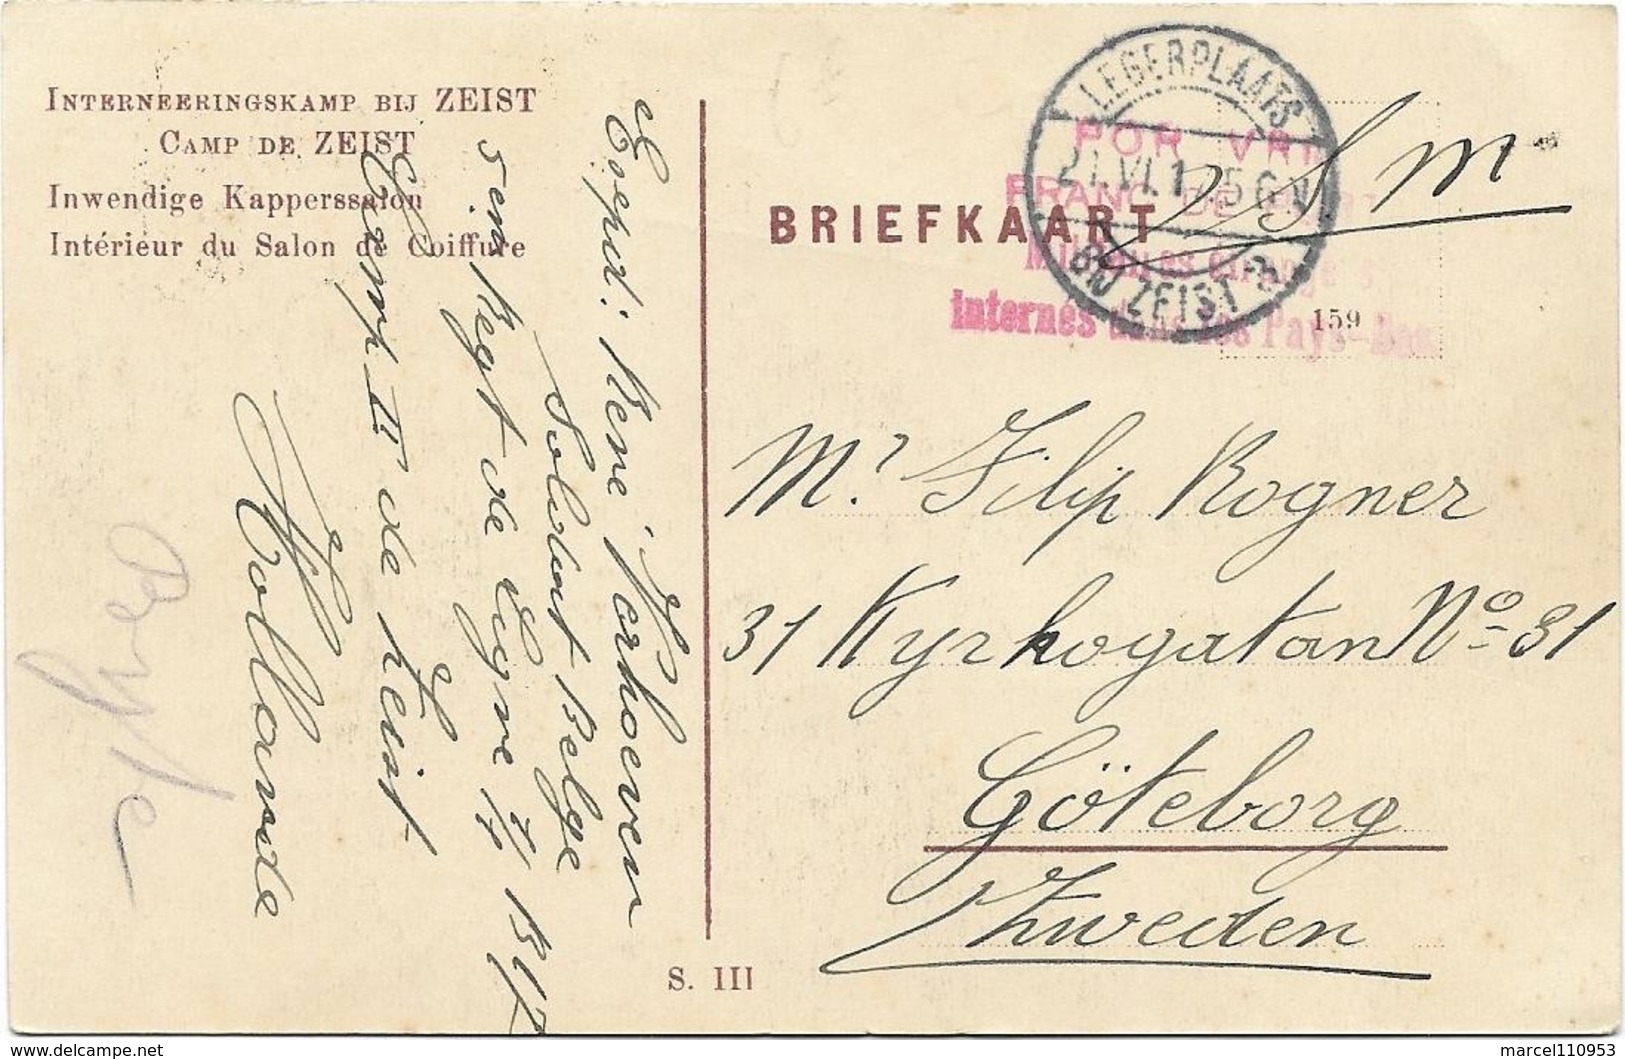 INTERNEERINGSKAMP BIJ ZEIST
CAMP DE ZEIST
Inwendige Kapperssalon
Intérieur du Salon de Coiffure
Exped: Rene Verhoeven
Soldat Belge
5em Regt de Ligne
Camp II de Zeist
Hollande
BRIEFKAART
LEGERPLAATS
BIJ ZEIST
FRANC DE
internés dans les Pays-Bas
S M
159
Mr Filip Rogner
31 Kyrkogatan No 31
Göteborg
Zweden
S. III
delcampe.net
marcel110953